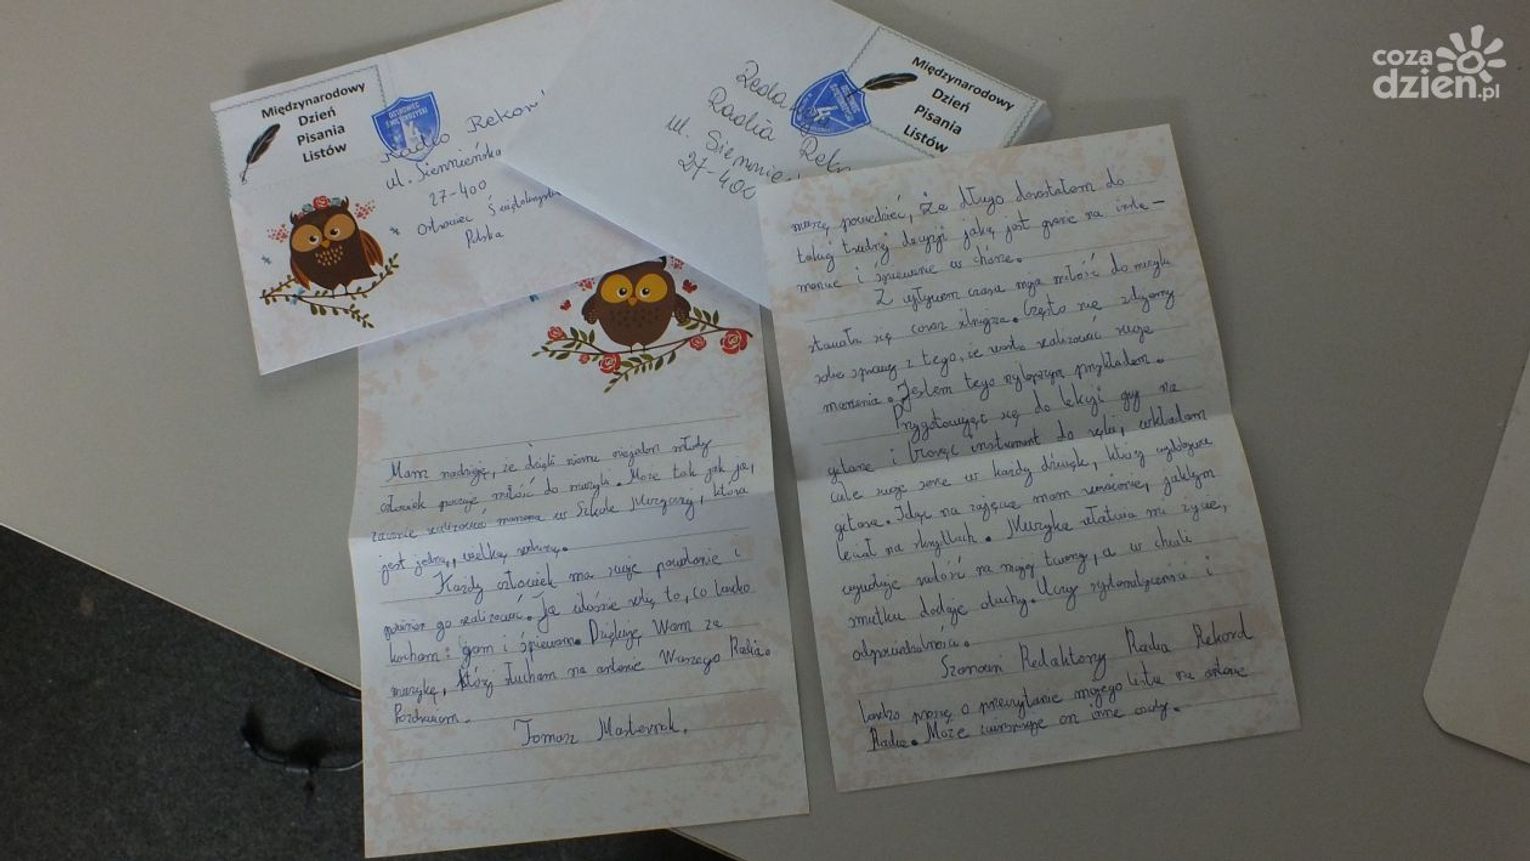 coza
dzien.pl
Międzynarodowy
Dzień
Pisania
Listów
OSTROWIEC
ŚWIĘTOKRZYSKI
Radio Rekord
ul. Siennieńska
27-400
Ostrowiec Świętokrzyski
Polska
Międzynarodowy
Dzień
Pisania
Listów
Radia
ul. Siennień
27-400
muszę powiedzieć, że długo dorastałem do
takiej trudnej decyzji jaką jest granie na instru-
mencie i śpiewanie w chórze.
Z upływem czasu moja miłość do muzyki
stawała się coraz silniejsza. Często nie zdajemy
sobie sprawy z tego, że warto realizować swoje
marzenia. Jestem tego najlepszym przykładem.
Przygotowując się do lekcji gry na
gitarze i biorąc instrument do ręki, wkładam
całe swoje serce w każdy dźwięk, który wydobywa
gitara. Idąc na zajęcia mam wrażenie, jakbym
leciał na skrzydłach. Muzyka ułatwia mi życie,
wywołuje radość na mojej twarzy, a w chwili
smutku dodaje otuchy. Uczy systematyczności i
odpowiedzialności.
Szanowni Redaktorzy Radia Rekord
bardzo proszę o przeczytanie mojego listu na antenie
Radia. Może zainspiruje on inne osoby.
Mam nadzieję, że dzięki niemu niejeden młody
człowiek poczuje miłość do muzyki. Może tak jak ja,
zacznie realizować marzenia w Szkole Muzycznej, która
jest jedną, wielką rodziną.
Każdy człowiek ma swoje powołanie i
powinien go realizować. Ja właśnie robię to, co bardzo
kocham: gram i śpiewam. Dziękuję Wam za
muzykę, której słucham na antenie Waszego Radia.
Pozdrawiam.
Tomasz Masternak.